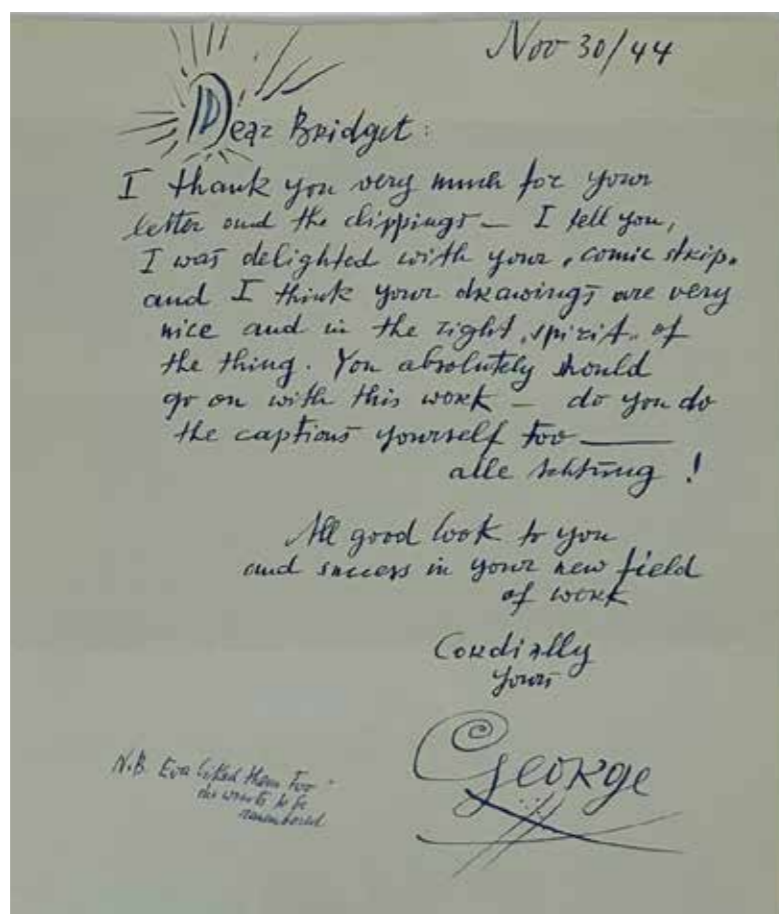 Nov 30/44
Dear Bridget:
I thank you very much for your
letter and the clippings — I tell you,
I was delighted with your "comic strip"
and I think your drawings are very
nice and in the right "spirit" of
the thing. You absolutely should
go on with this work — do you do
the captions yourself too ——
alle Achtung!
All good look to you
and success in your new field
of work
Cordially
yours
George
N.B. Eva liked them too
she wants to be
remembered